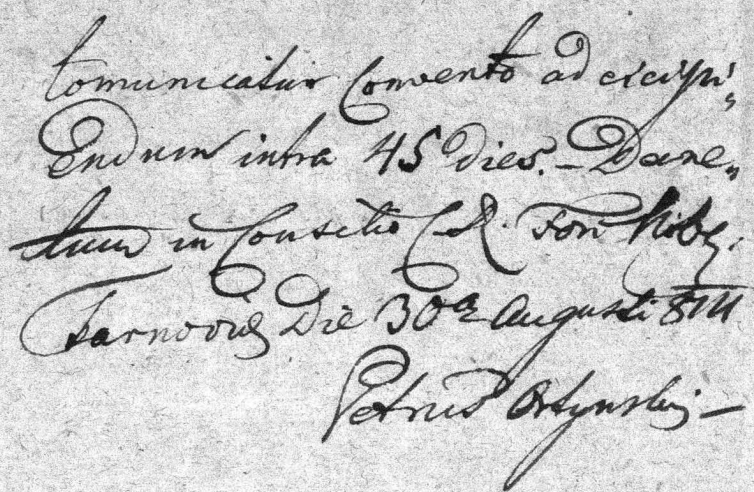 Comunicatur Convento ad excipi„
Endum intra 45 dies. – Decre„
tum in Consilio C. R. Fori Nobi.
Tarnoviæ Die 30a Augusti 811
Petrus Ortynski –